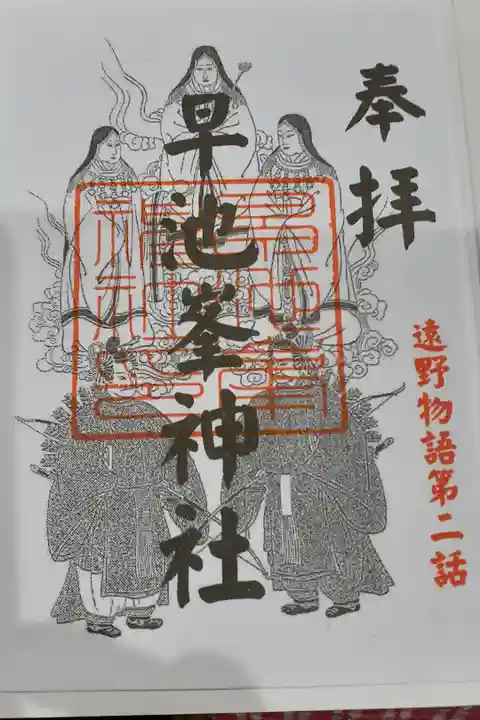 奉拝
遠野物語第二話
早池峯神社